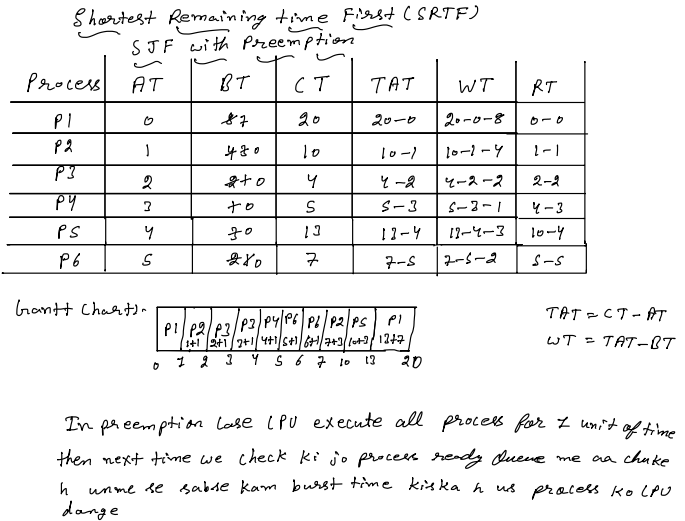 Shortest Remaining time First (SRTF)
SJF with Preemption
Process AT BT CT TAT WT RT
P1 0 8 7 20 20-0 20-0-8 0-0
P2 1 4 3 0 10 10-1 10-1-4 1-1
P3 2 2 1 0 4 4-2 4-2-2 2-2
P4 3 1 0 5 5-3 5-3-1 4-3
P5 4 3 0 13 13-4 13-4-3 10-4
P6 5 2 1 0 7 7-5 7-5-2 5-5
Gantt Chart:-
P1 P2 P3 P3 P4 P6 P6 P2 P5 P1
1+1 2+1 3+1 4+1 5+1 6+1 7+3 10+3 13+7
0 1 2 3 4 5 6 7 10 13 20
TAT = CT - AT
WT = TAT - BT
In preemption case CPU execute all process for 1 unit of time
then next time we check ki jo process ready Queue me aa chuke
h unme se sabse kam burst time kiska h us process ko CPU
dange